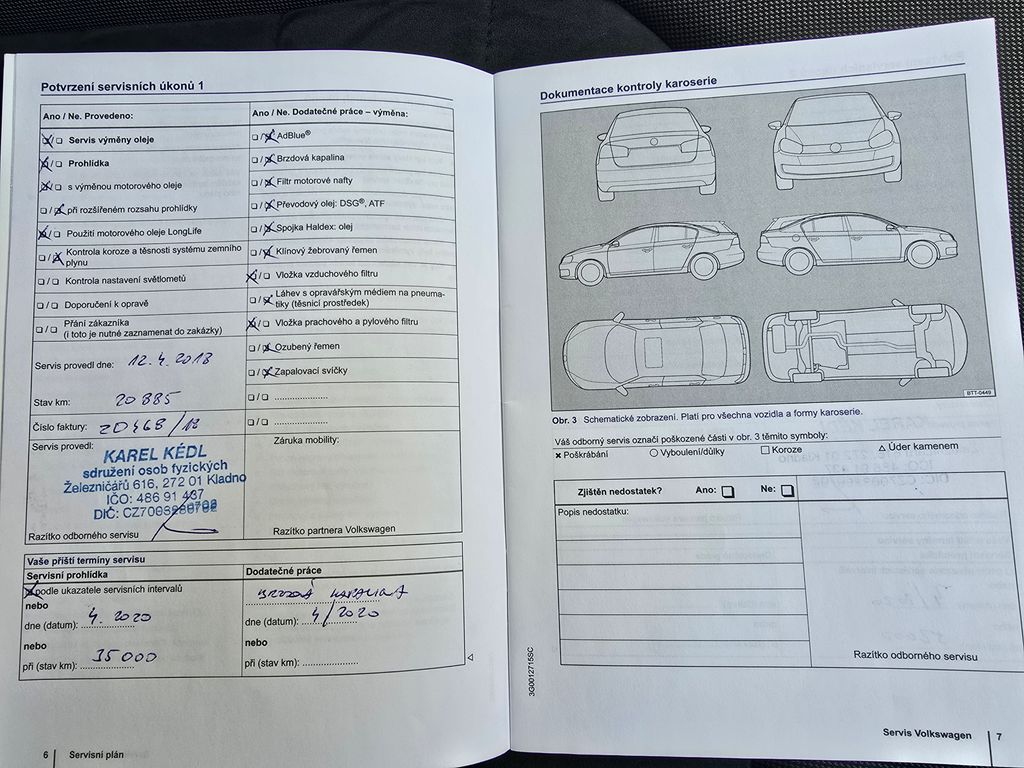 Potvrzení servisních úkonů 1
Ano / Ne. Provedeno:
☒ / ❏ Servis výměny oleje
☒ / ❏ Prohlídka
☒ / ❏ s výměnou motorového oleje
❏ / ☒ při rozšířeném rozsahu prohlídky
☒ / ❏ Použití motorového oleje LongLife
❏ / ☒ Kontrola koroze a těsnosti systému zemního
plynu
❏ / ❏ Kontrola nastavení světlometů
❏ / ❏ Doporučení k opravě
❏ / ❏ Přání zákazníka
(i toto je nutné zaznamenat do zakázky)
Servis provedl dne: 12.4.2018
Stav km: 20 885
Číslo faktury:
Servis provedl:
KAREL KÉDL
sdružení osob fyzických
Železničářů 616, 272 01 Kladno
IČO: 486 91 437
DIČ:
Razítko odborného servisu
Ano / Ne. Dodatečné práce – výměna:
❏ / ☒ AdBlue®
❏ / ☒ Brzdová kapalina
❏ / ☒ Filtr motorové nafty
❏ / ☒ Převodový olej: DSG®, ATF
❏ / ☒ Spojka Haldex: olej
❏ / ☒ Klínový žebrovaný řemen
☒ / ❏ Vložka vzduchového filtru
❏ / ☒ Láhev s opravářským médiem na pneuma-
tiky (těsnicí prostředek)
☒ / ❏ Vložka prachového a pylového filtru
❏ / ☒ Ozubený řemen
❏ / ☒ Zapalovací svíčky
❏ / ❏ ....................
❏ / ❏ ....................
Záruka mobility:
Razítko partnera Volkswagen
Vaše příští termíny servisu
Servisní prohlídka
☒ podle ukazatele servisních intervalů
nebo
dne (datum): 4. 2020
nebo
při (stav km): 35 000
Dodatečné práce
BRZDOVÁ KAPALINA
dne (datum): 4/2020
nebo
při (stav km): ....................
6 Servisní plán
Dokumentace kontroly karoserie
BTT-0449
Obr. 3 Schematické zobrazení. Platí pro všechna vozidla a formy karoserie.
Váš odborný servis označí poškozené části v obr. 3 těmito symboly:
× Poškrábání ○ Vyboulení/důlky □ Koroze △ Úder kamenem
Zjištěn nedostatek? Ano: ❏ Ne: ❏
Popis nedostatku:
Razítko odborného servisu
3G0012715SC
Servis Volkswagen 7